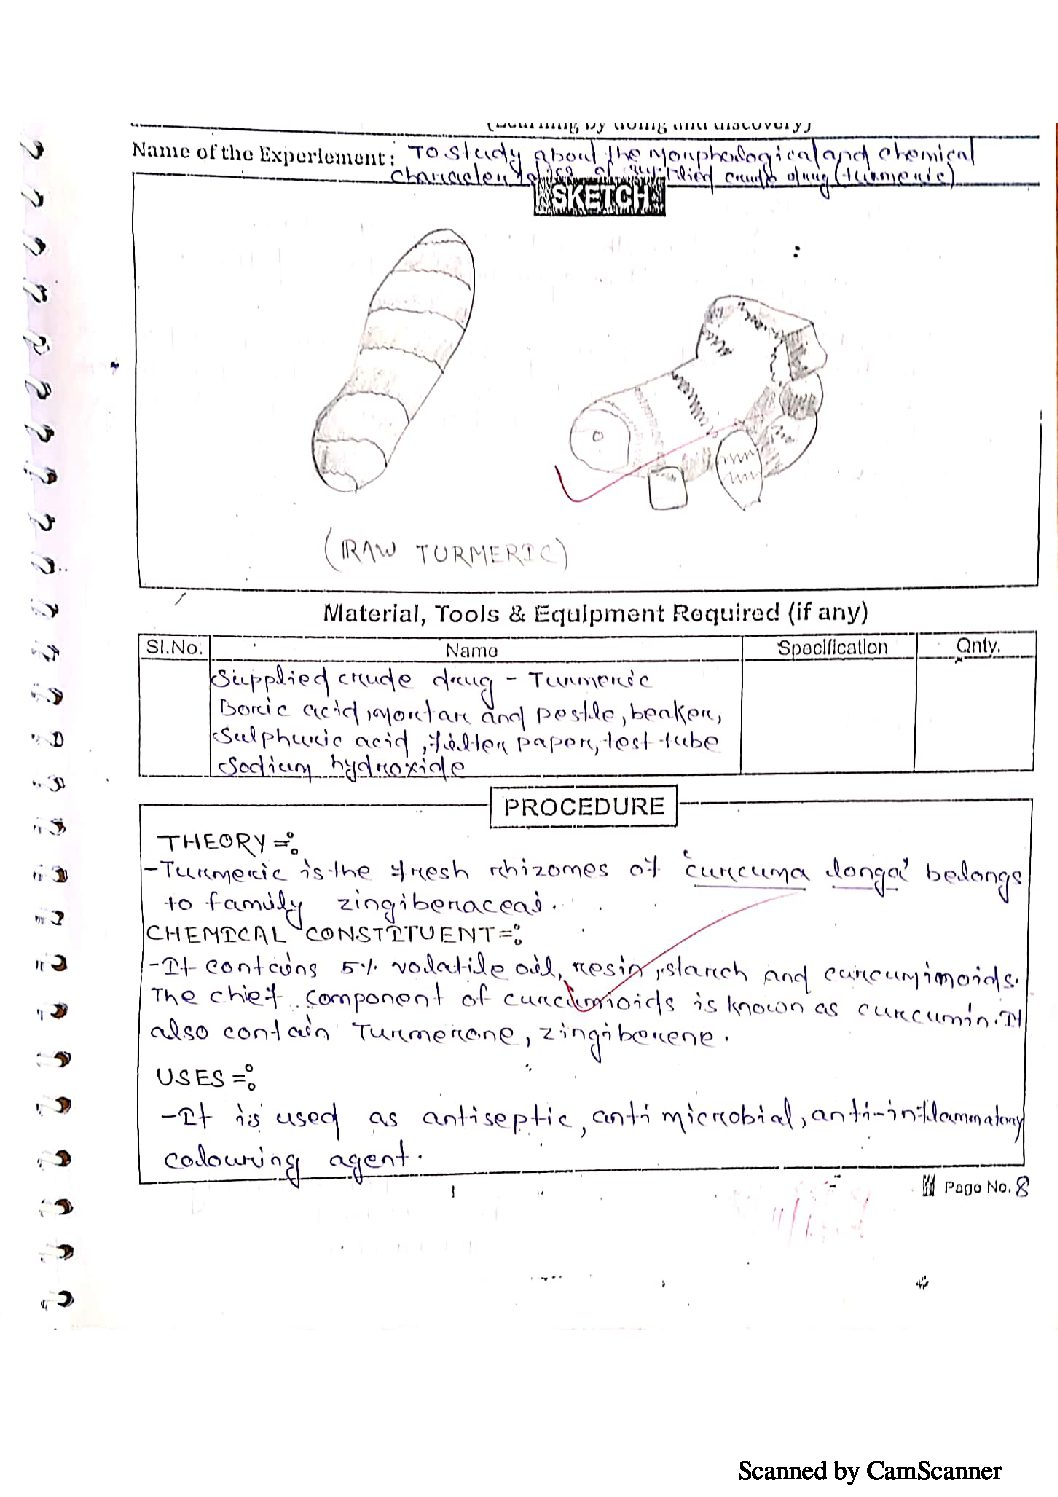 (Learning by doing and discovery)
Name of the Experiement: To study about the Morphological and chemical
characteristics of supplied crude drug (turmeric)
SKETCH
(RAW TURMERIC)
Material, Tools & Equipment Required (if any)
Sl.No. Name Specification Qnty.
Supplied crude drug - Turmeric
Boric acid, Mortar and pestle, beaker,
Sulphuric acid, filter paper, test tube
Sodium hydroxide
PROCEDURE
THEORY =:
- Turmeric is the fresh rhizomes of 'curcuma longa' belongs
to family zingiberaceai.
CHEMICAL CONSTITUENT =:
- It contains 5% volatile oil, resin, starch and curcumimoids.
The chief component of curcumioids is known as curcumin. It
also contain Turmerone, zingiberene.
USES =:
- It is used as antiseptic, anti microbial, anti-inflammatory
colouring agent.
Page No. 8
Scanned by CamScanner